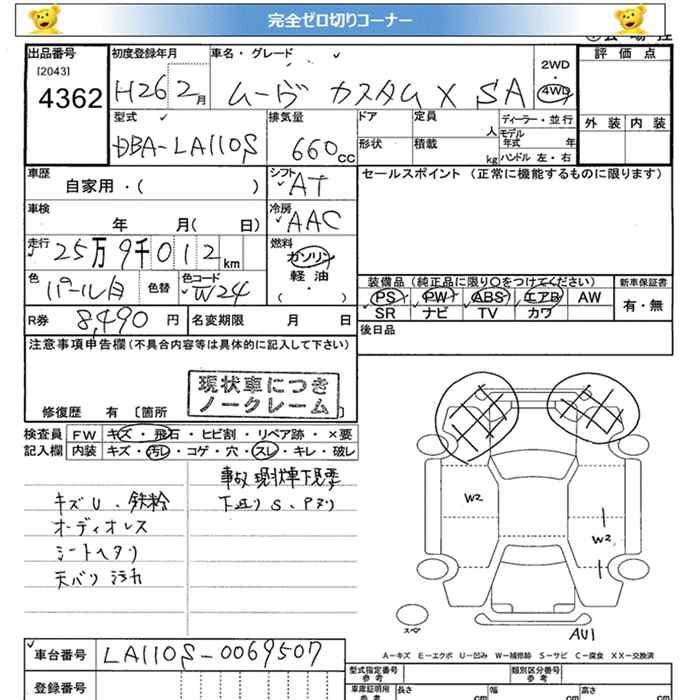 完全ゼロ切りコーナー
出品番号 初度登録年月 車名・グレード 評価点
[2043]
4362 H26 2月 ムーヴ カスタム X SA 2WD 4WD
型式 排気量 ドア 定員 人 ディーラー・並行 外装 内装
DBA-LA110S 660cc 形状 積載 kg モデル年式 年
ハンドル 左・右
車歴 自家用・( ) シフト AT セールスポイント (正常に機能するものに限ります)
車検 年 月( 日) 冷房 AAC
走行 25万9千012km 燃料 ガソリン
軽油
( ・ )
色 パール白 色替 色コード W24 装備品 (純正品に限り○をつけてください) 新車保証書
PS PW ABS エアB AW 有・無
SR ナビ TV カワ
R券 8,490円 名変期限 月 日 後日品
注意事項申告欄(不具合内容等は具体的に記入して下さい)
現状車につき
ノークレーム
修復歴 有 [箇所
検査員 FW キズ・飛石・ヒビ割・リペア跡・×要
記入欄 内装 キズ・汚れ・コゲ・穴・スレ・キレ・破レ
事故 現状車下見要
キズU、鉄粉 下廻りS、Pヌリ
オーディオレス
シートヘタリ
天バリ汚れ
W2
W2
スペア
AU1
A−キズ E−エクボ U−凹み W−補修跡 S−サビ C−腐食 XX−交換済
車台番号 LA110S-0069507
登録番号
型式指定番号 類別区分番号
車庫証明用参考 長さ cm 幅 cm 高さ cm